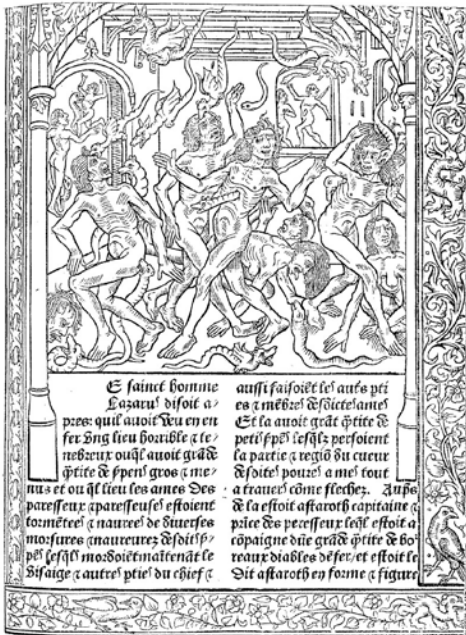 E sainct homme
Lazaruˢ disoit a-
pres: quil auoit veu en en
fer vng lieu horrible ⁊ te-
nebreux ouq̃l auoit grãde
q̃tite de ẜpens gros ⁊ me-
nus et ou q̃l lieu les ames des
paresseux ⁊ paresseuseˢ estoient
tormẽtees ⁊ naurees de diuerses
morsures ⁊ naureurez desdits
lesq̃lˢ mordoiẽt maĩtenãt le
visaige ⁊ autreˢ ptieˢ du chief ⁊
aussi faisoiẽt les autˢ pti
es ⁊ mẽbreˢ desdicteˢ ameˢ
Et la auoit grãt q̃tite de
petiˢ lesq̃lz persoient
la partie ⁊ regiõ du cueur
desditeˢ pourez ameˢ tout
a trauerˢ cõme flechez. Aup̃s
de la estoit astaroth capitaine ⁊
prĩce des peresseux leq̃l estoit a
cõpaigne dũe grãde q̃tite de bo-
reaux diables dẽfer, et estoit le
dit astaroth en forme ⁊ figure